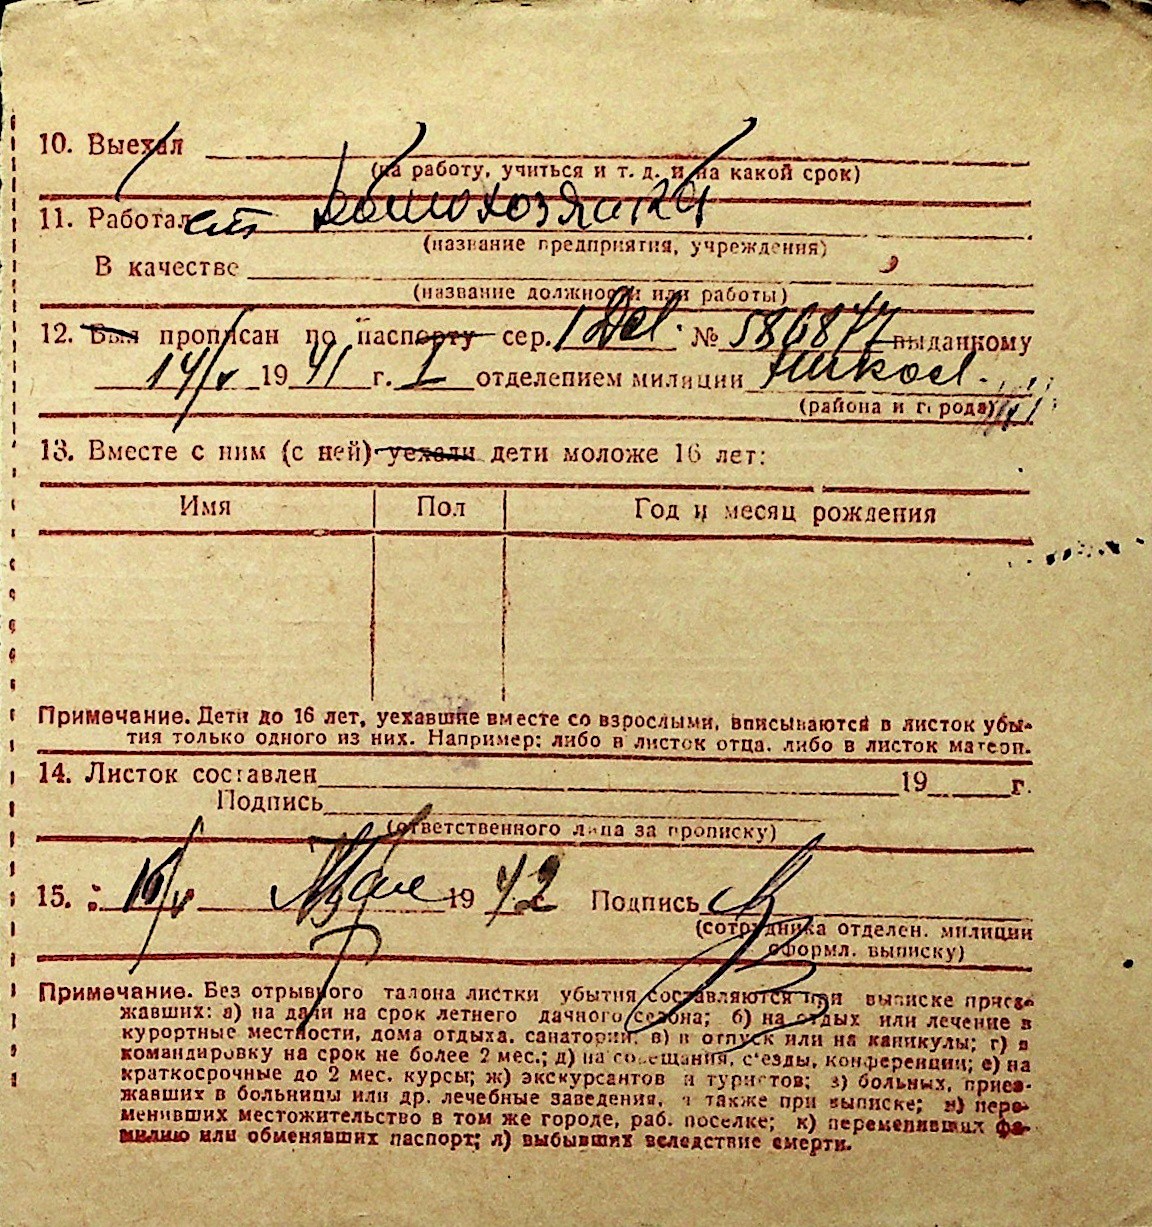 10. Выехал
(на работу, учиться и т. д. и на какой срок)
11. Работает Домохозяйка
(название предприятия, учреждения)
В качестве
(название должности или работы)
12. Был прописан по паспорту сер. № 586877 выданному
14/V 1941 г. I отделением милиции
(района и города)
13. Вместе с ним (с ней) уехали дети моложе 16 лет:
Имя Пол Год и месяц рождения
Примечание. Дети до 16 лет, уехавшие вместе со взрослыми, вписываются в листок убы-
тия только одного из них. Например: либо в листок отца, либо в листок матери.
14. Листок составлен 19 г.
Подпись
(ответственного лица за прописку)
15. 1942 Подпись
(сотрудника отделен. милиции
оформл. выписку)
Примечание. Без отрывного талона листки убытия составляются при выписке приез-
жавших: а) на дачи на срок летнего дачного сезона; б) на отдых или лечение в
курортные местности, дома отдыха, санатории; в) в отпуск или на каникулы; г) в
командировку на срок не более 2 мес.; д) на совещания, с'езды, конференции; е) на
краткосрочные до 2 мес. курсы; ж) экскурсантов и туристов; з) больных, приез-
жавших в больницы или др. лечебные заведения, а также при выписке; и) пере-
менивших местожительство в том же городе, раб. поселке; к) переменивших фа-
милию или обменявших паспорт; л) выбывших вследствие смерти.